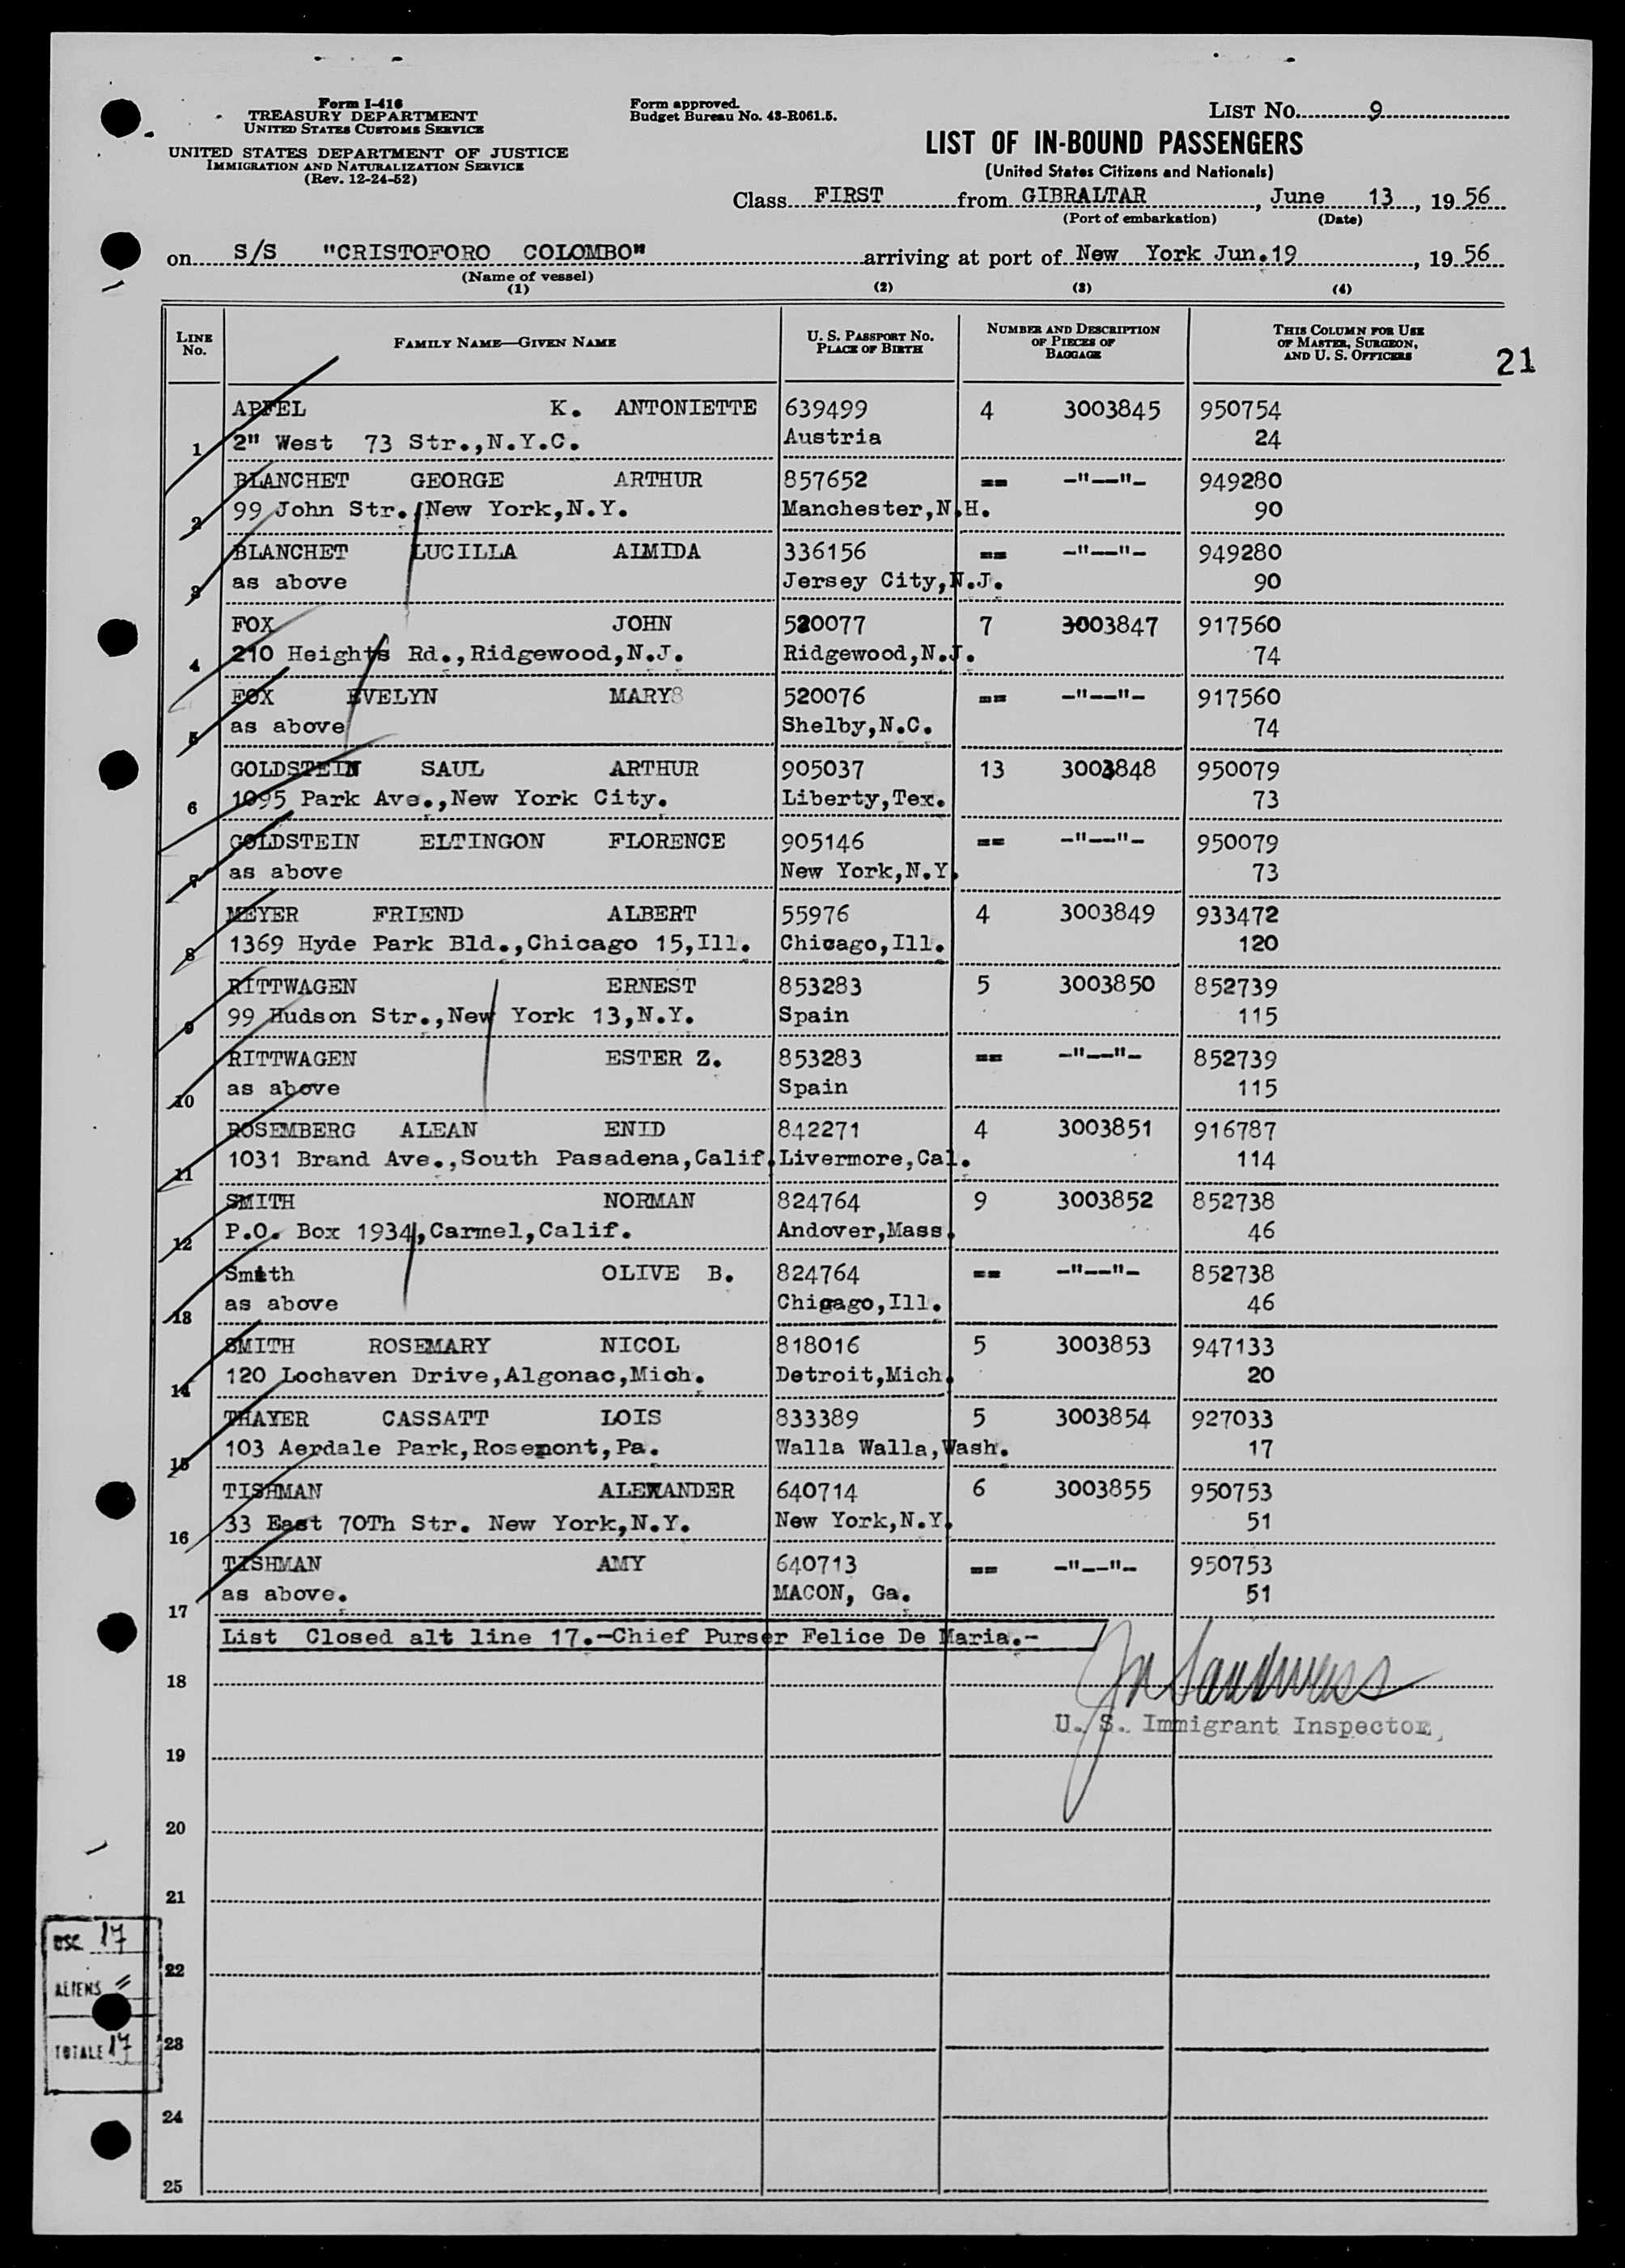 Form I-416
TREASURY DEPARTMENT
UNITED STATES CUSTOMS SERVICE
UNITED STATES DEPARTMENT OF JUSTICE
IMMIGRATION AND NATURALIZATION SERVICE
(Rev. 12-24-52)
Form approved.
Budget Bureau No. 43-R061.5.
LIST No. 9
LIST OF IN-BOUND PASSENGERS
(United States Citizens and Nationals)
Class FIRST from GIBRALTAR, June 13, 19 56
(Port of embarkation) (Date)
on S/S "CRISTOFORO COLOMBO" arriving at port of New York Jun.19, 19 56
(Name of vessel)
(1) (2) (3) (4)
LINE No. FAMILY NAME—GIVEN NAME U. S. PASSPORT No. PLACE OF BIRTH NUMBER AND DESCRIPTION OF PIECES OF BAGGAGE THIS COLUMN FOR USE OF MASTER, SURGEON, AND U. S. OFFICERS
21
APFEL K. ANTONIETTE 639499 4 3003845 950754
1 2" West 73 Str.,N.Y.C. Austria 24
BLANCHET GEORGE ARTHUR 857652 == -"--"- 949280
2 99 John Str.,New York,N.Y. Manchester,N.H. 90
BLANCHET LUCILLA ALMIDA 336156 == -"--"- 949280
3 as above Jersey City,N.J. 90
FOX JOHN 520077 7 3003847 917560
4 210 Heights Rd.,Ridgewood,N.J. Ridgewood,N.J. 74
FOX EVELYN MARY8 520076 == -"--"- 917560
5 as above Shelby,N.C. 74
GOLDSTEIN SAUL ARTHUR 905037 13 3003848 950079
6 1095 Park Ave.,New York City. Liberty,Tex. 73
GOLDSTEIN ELTINGON FLORENCE 905146 == -"--"- 950079
7 as above New York,N.Y. 73
MEYER FRIEND ALBERT 55976 4 3003849 933472
8 1369 Hyde Park Bld.,Chicago 15,Ill. Chicago,Ill. 120
RITTWAGEN ERNEST 853283 5 3003850 852739
9 99 Hudson Str.,New York 13,N.Y. Spain 115
RITTWAGEN ESTER Z. 853283 == -"--"- 852739
10 as above Spain 115
ROSEMBERG ALEAN ENID 842271 4 3003851 916787
11 1031 Brand Ave.,South Pasadena,Calif. Livermore,Cal. 114
SMITH NORMAN 824764 9 3003852 852738
12 P.O. Box 1934,Carmel,Calif. Andover,Mass. 46
Smith OLIVE B. 824764 == -"--"- 852738
13 as above Chicago,Ill. 46
SMITH ROSEMARY NICOL 818016 5 3003853 947133
14 120 Lochaven Drive,Algonac,Mich. Detroit,Mich. 20
THAYER CASSATT LOIS 833389 5 3003854 927033
15 103 Aerdale Park,Rosemont,Pa. Walla Walla,Wash. 17
TISHMAN ALEXANDER 640714 6 3003855 950753
16 33 East 70Th Str. New York,N.Y. New York,N.Y. 51
TISHMAN AMY 640713 == -"--"- 950753
17 as above. MACON, Ga. 51
List Closed alt line 17.-Chief Purser Felice De Maria.-
18
U. S. Immigrant Inspector
19
20
21
22
23
24
25
USC 17
ALIENS "
TOTALE 17